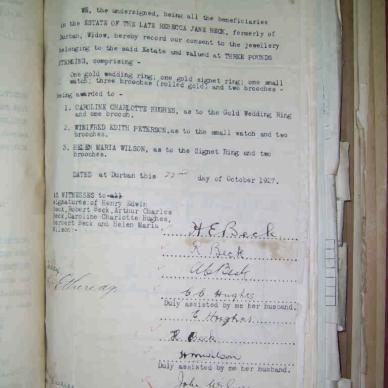 WE, the undersigned, being all the beneficiaries
in the ESTATE OF THE LATE REBECCA JANE BECK, formerly of
Durban, Widow, hereby record our consent to the jewellery
belonging to the said Estate and valued at THREE POUNDS
STERLING, comprising -
One gold wedding ring; one gold signet ring; one small
watch; three brooches (rolled gold) and two brooches -
being awarded to -
1. CAROLINE CHARLOTTE HUGHES, as to the Gold Wedding Ring
and one brooch.
2. WINIFRED EDITH PETERSON, as to the small watch and two
brooches.
3. HELEN MARIA WILSON, as to the Signet Ring and two
brooches.
DATED at Durban this day of October 1927.
AS WITNESSES to all
signatures of Henry Edwin
Beck, Robert Beck, Arthur Charles
Beck, Caroline Charlotte Hughes,
Herbert Beck and Helen Maria
Wilson:-
H E Beck
R Beck
A C Beck
C C Hughes
Duly assisted by me her husband.
E Hughes
H Beck
H M Wilson
Duly assisted by me her husband.
John Wilson